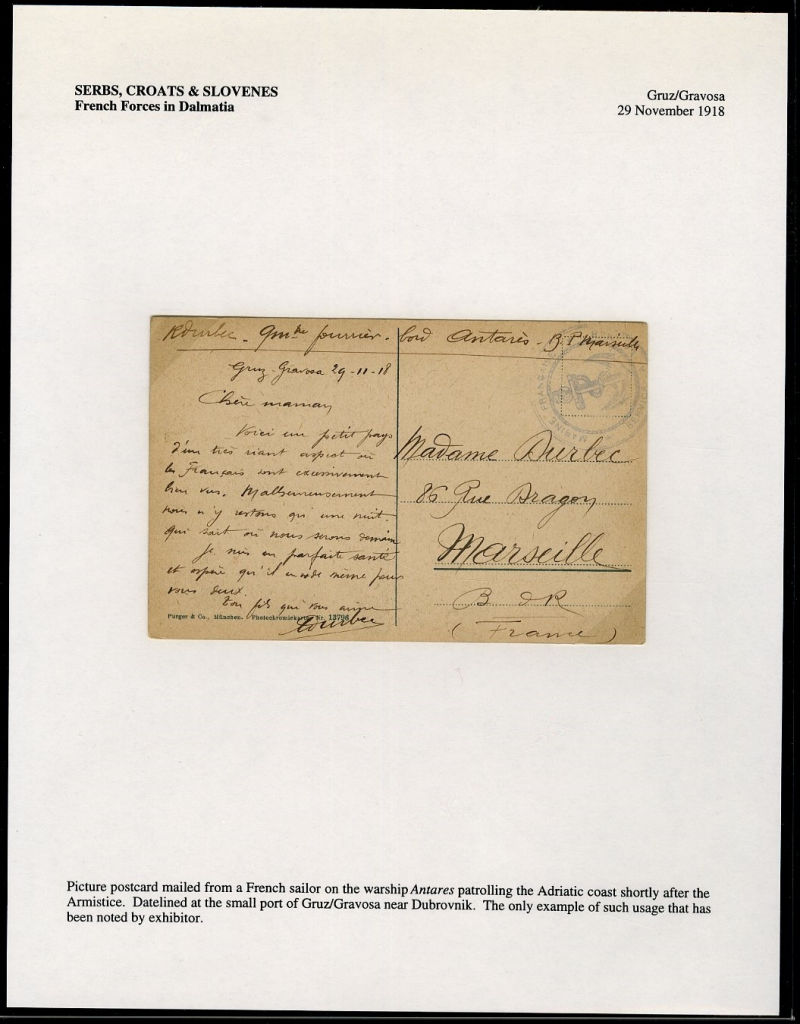 SERBS, CROATS & SLOVENES
French Forces in Dalmatia
Gruz/Gravosa
29 November 1918
RDurbec - Qm tre fourrier - bord Antarès - B.P. Marseille
Gruz-Gravosa 29-11-18
Chère maman
Voici un petit pays
d'un très riant aspect où
les Français sont excessivement
bien vus. Malheureusement
nous n'y restons qu'une nuit.
qui sait où nous serons demain
Je suis en parfaite santé
et espère qu'il en de même pour
vous deux.
Ton fils qui vous aime
RDurbec
Purger & Co., München. Photochromiekarte Nr. 13796
MARINE FRANÇAISE
Madame Durbec
86 Rue Dragon
Marseille
B d R
(France)
Picture postcard mailed from a French sailor on the warship Antares patrolling the Adriatic coast shortly after the
Armistice. Datelined at the small port of Gruz/Gravosa near Dubrovnik. The only example of such usage that has
been noted by exhibitor.